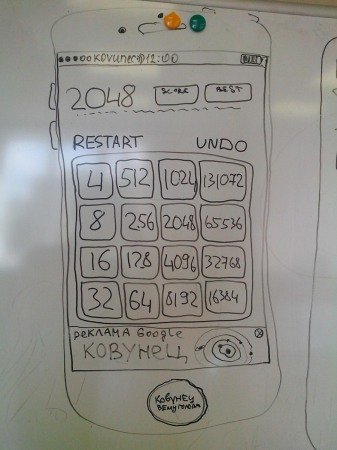 kovunec 12:00
2048 SCORE BEST
RESTART UNDO
4 512 1024 131072
8 256 2048 65536
16 128 4096 32768
32 64 8192 16384
реклама Google
КОВУНЕЦ
КОВУНЕЦ